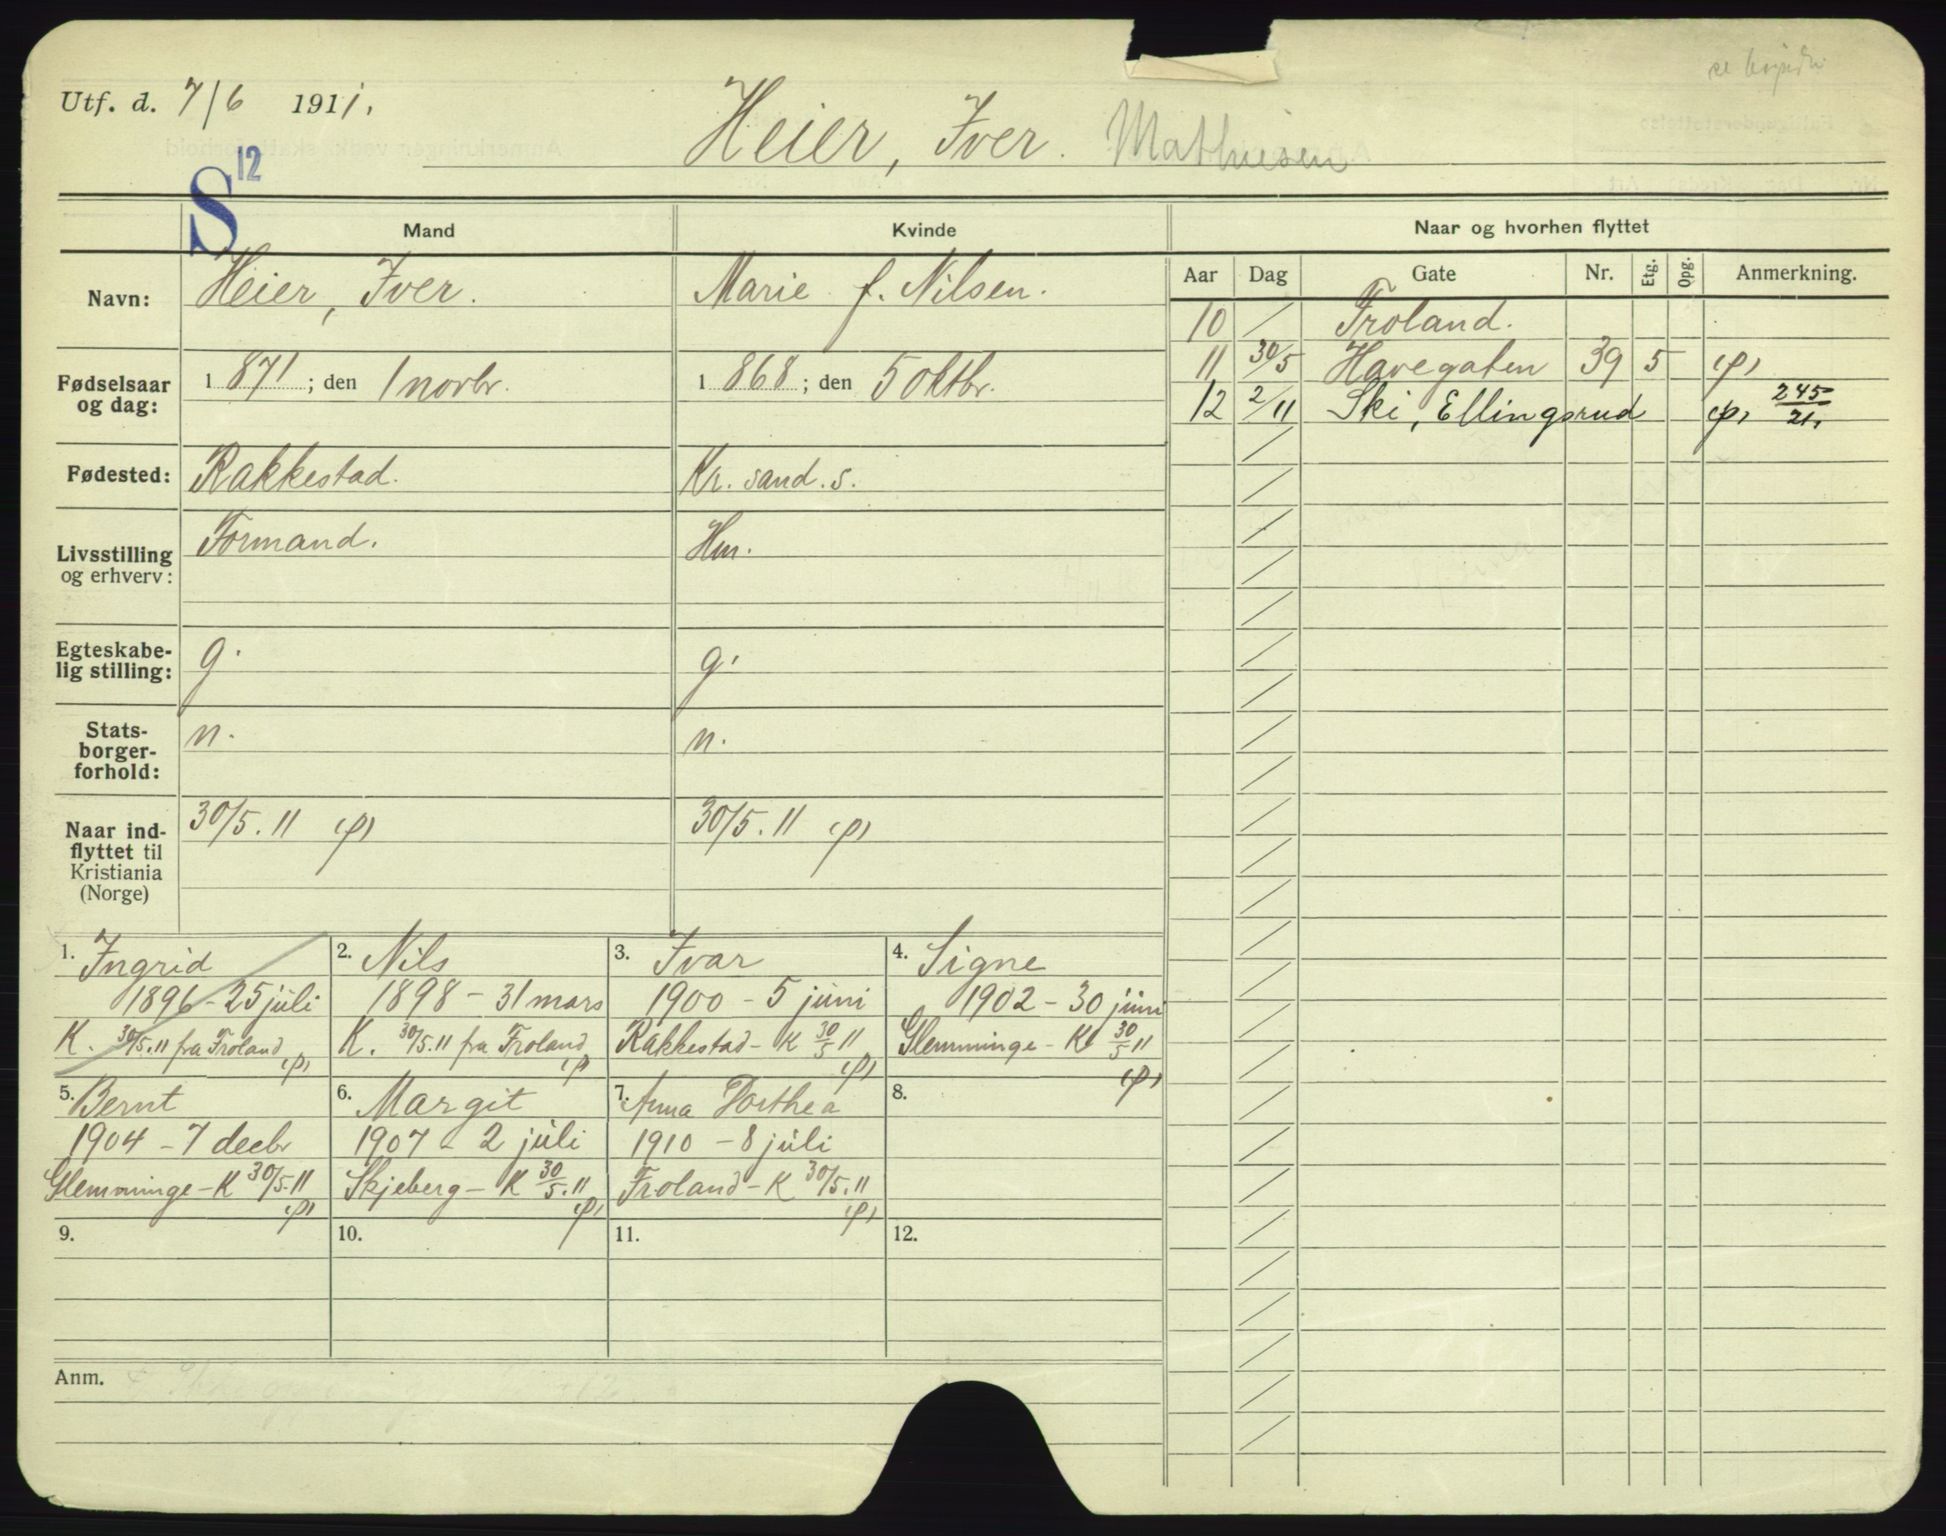 Utf. d. 7/6 1911.
Heier, Iver. Mathiesen
S 12
Mand
Kvinde
Naar og hvorhen flyttet
Navn:
Heier, Iver.
Marie f. Nilsen.
Aar Dag Gate Nr. Etg. Opg. Anmerkning.
10 / Froland.
11 30/5 Havegaten 39 5 (p)
12 2/11 Ski, Ellingsrud (p) 245/21.
Fødselsaar og dag:
1871; den 1 novbr.
1868; den 5 oktbr.
Fødested:
Rakkestad.
Kr. sand. s.
Livsstilling og erhverv:
Formand.
Hm.
Egteskabe-
lig stilling:
g.
g.
Stats-
borger-
forhold:
n.
n.
Naar ind-
flyttet til
Kristiania
(Norge)
30/5. 11 (p)
30/5. 11 (p)
1. Ingrid
1896 - 25 juli
K. 30/5. 11 fra Froland (p)
2. Nils
1898 - 31 mars
K. 30/5. 11 fra Froland (p)
3. Ivar
1900 - 5 juni
Rakkestad - K 30/5 11 (p)
4. Signe
1902 - 30 juni
Glemminge - K 30/5 11 (p)
5. Bernt
1904 - 7 decbr
Glemminge - K 30/5. 11 (p)
6. Margit
1907 - 2 juli
Skjeberg - K 30/5. 11 (p)
7. Anna Dorthea
1910 - 8 juli
Froland - K 30/5. 11 (p)
8.
9.
10.
11.
12.
Anm.